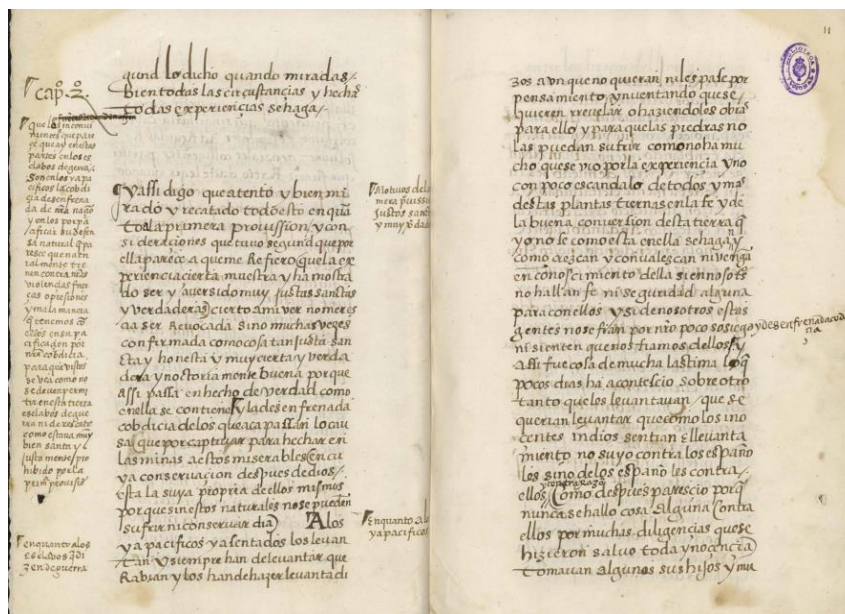 gund lo dicho quando miradas
Bien todas las circustancias y hechas
todas experiençias se haga
capº. 2º.
que los inconvi
nientes que pare
çe que ay en estas
partes en los es
clabos de guerra
son en los ya pa
cificos la cobdi
çia desenfrena
da de nra naçio
y en los por pa
cificar su defen
sa natural q pa
resçe que natu
ralmente tie
nen contra nras
violencias fuer
ças opresiones
y mala manera
q tenemos co
ellos en su pa
cificaçion por
nra cobdicia
para que vistos
se vea como no
se deven permi
tir en esta tierra
esclabos de gue
rra ni de rescate
como estava muy
bien santa y
justamente pro
hibido por la
primª provisiõ
en quanto a los
esclavos q di
zen de guerra
Y assi digo que atento y bien mi
rado y recatado todo esto en quã
to a la primera provission y con
sideraciones que tuvo segund que por
ella parece a que me Refiero que la ex
periencia cierta muestra y ha mostra
do ser y aver sido muy justas sanctas
y verdaderas cierto a mi ver no meres
cia ser Revocada sino muchas veçes
confirmada como cosa tan justa san
cta y honesta y muy cierta y verda
dera y noctoriamente buena porque
assi passa en hecho de verdad como
en ella se contiene y la desenfrenada
cobdicia de los que aca passan lo cau
sa que por captivar para hechar en
las minas a estos miserables en cu
ya conservacion despues de dios
esta la suya propria de ellos mismos
porque sin estos naturales no se pueden
sufrir ni conservar dia A los
ya pacificos y asentados los levan
tan y siempre han de levantar que
Rabian y los han de hazer levantadi
Motivos de la
mera provissiõ
justos santos
y muy vdade
En quanto a lo
ya pacificos
11
zos aunque no quieran ni les passe por
pensamiento ynventando que se
quieren rrevelar o haziendoles obras
para ello y para que las piedras no
las puedan sufrir como no ha mu
cho que se vio por la experiencia y no
con poco escandalo de todos y mas
destas plantas tiernas en la fe y de
la buena conversion desta tierra q
yo no se como esta en ella se haga ny
como crezcan y convalescan ni vengan
en conoscimiento della si en nosotros
no hallan fe ni seguridad alguna
para con ellos y si de nosotros estas
gentes no se fian por nro poco sosiego y desenfrenada cobdi
cia
ni sienten que nos fiamos dellos y
Assi fue cosa de mucha lastima lo q
pocos dias ha acontescio sobre otro
tanto que les levantavan que se
querian levantar que como los ino
centes indios sentian el levanta
miento no suyo contra los españo
les sino de los españoles contra
ellos y contra razõ Como despues parescio porq
nunca se hallo cosa alguna contra
ellos por muchas diligencias que se
hizieron salvo toda ynocencia
tomavan algunos sus hijos y mu